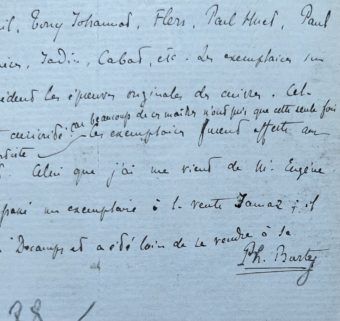 Tony Johannot, Flers, Paul Huet, Paul
Jadin, Cabat, etc. Les exemplaires sur
les épreuves originales des cuivres. Cet
car beaucoup de ces maîtres n'ont pris que cette seule fois
curiosité. Les exemplaires furent offerts aux
Celui que j'ai me vient de Mr. Eugène
un exemplaire à la vente ; il
Decamps et a été loin de se vendre à sa
Ph. Burty
38